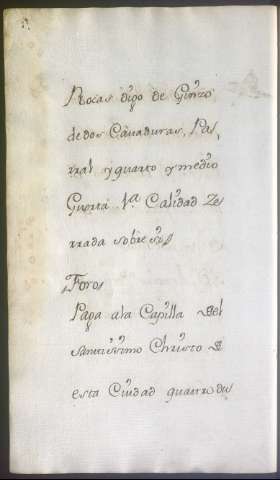 Rocas digo de Ginzo
de dos Cauaduras, Pa
rral y quarto y medio
Guerta 1ª Calidad Ze
rrada sobre si
Foros
Paga ala Capilla del
Santissimo Christo D
esta Ciudad quatro du